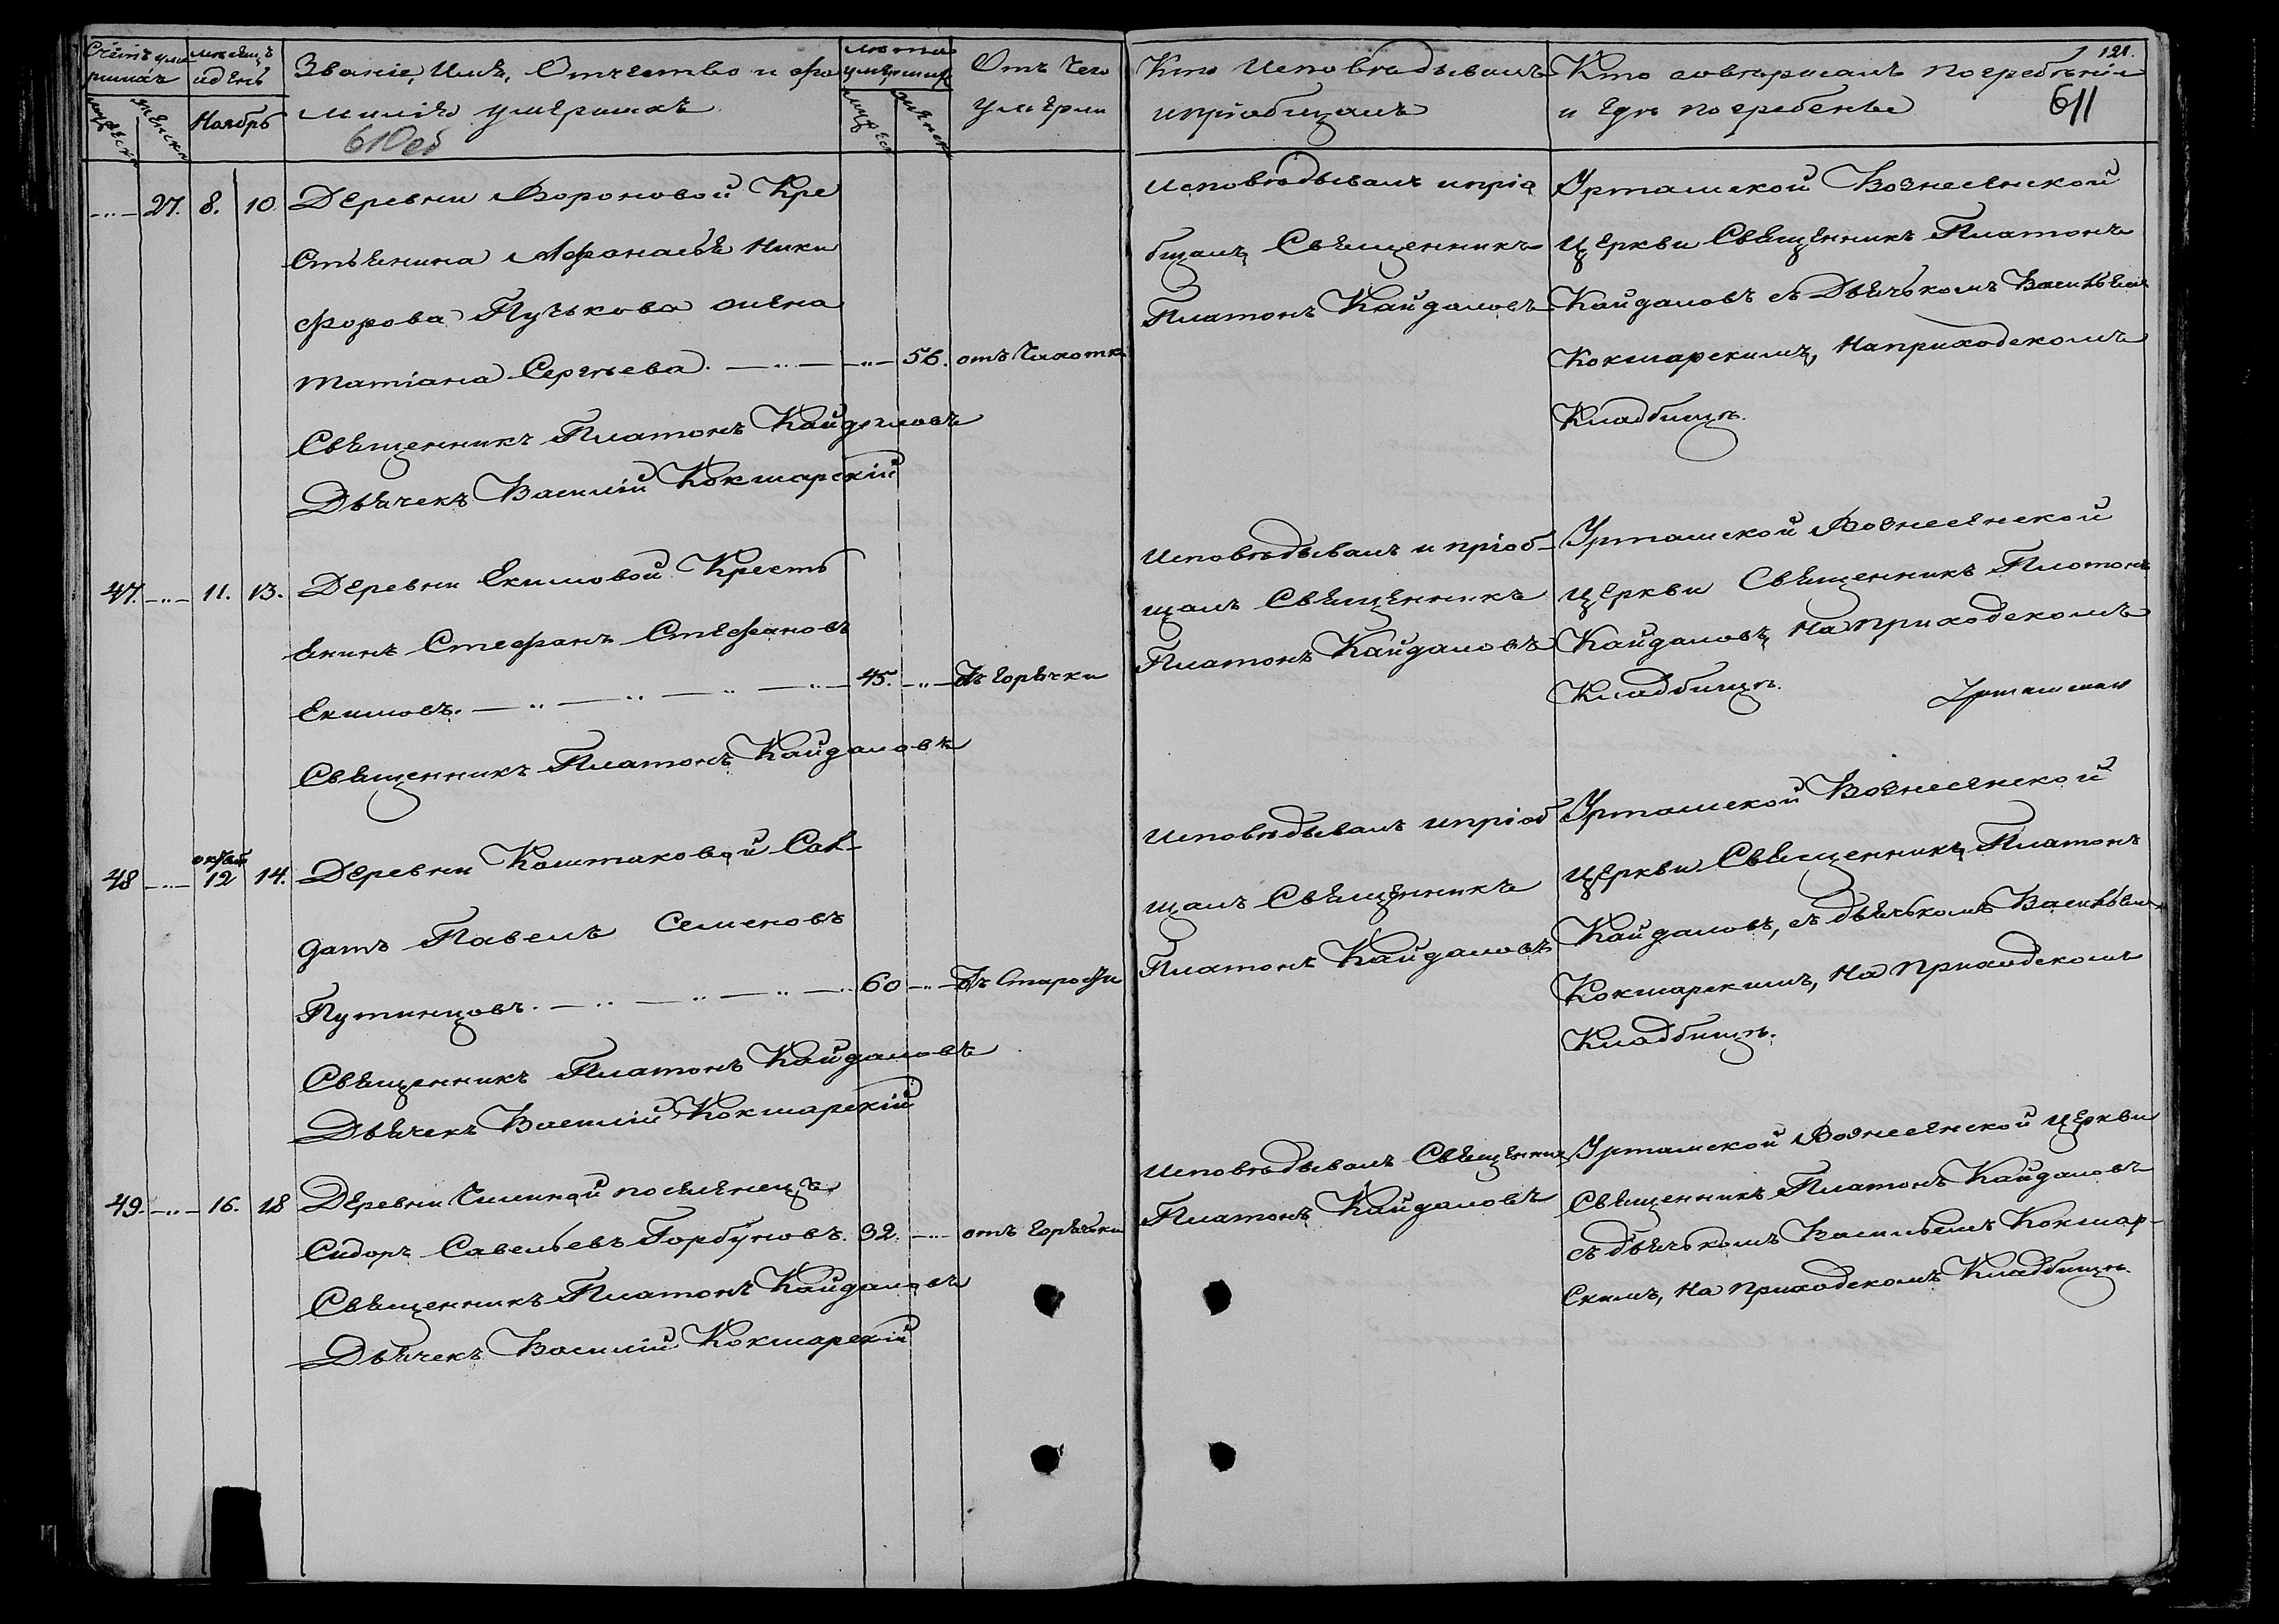 Счетъ уме
ршихъ
мѣсяцъ
и день
Званіе, Имя, Отчество и фа
лѣта
умершихъ
Отъ чего
Кто Исповѣдывалъ
Кто совершалъ погребеніе
121.
мужеска
женска
Ноябрь
милія умершихъ
мужеска
женска
умерли
и пріобщалъ
и гдѣ погребены
611
610об
27. 8. 10. Деревни Вороновой Кре
стьянина Афонасья Ники
форова Пучькова жена
Татіана Сергѣева. 56. отъ Чахотки
Священникъ Платонъ Кайдаловъ
Дьячекъ Василій Кокшарскій
Исповѣдывалъ и пріо
бщалъ Священникъ
Платонъ Кайдаловъ
Урташской Вознесенской
Церкви Священникъ Платонъ
Кайдаловъ съ Дьячькомъ Васильемъ
Кокшарскимъ, На приходскомъ
Кладбищѣ.
47. 11. 13. Деревни Екимовой Кресть
янинъ Стефанъ Стефановъ
Екимовъ. 45. отъ горячки
Священникъ Платонъ Кайдаловъ
Исповѣдывалъ и пріоб-
щалъ Священникъ
Платонъ Кайдаловъ
Урташской Вознесенской
Церкви Священникъ Платонъ
Кайдаловъ, На приходскомъ
Кладбищѣ.
48 12 14. Деревни Коштаковой Сол-
датъ Павелъ Семеновъ
Путинцовъ. 60 отъ Старости
Священникъ Платонъ Кайдаловъ
Дьячекъ Василій Кокшарскій
Исповѣдывалъ и пріоб
щалъ Священникъ
Платонъ Кайдаловъ
Урташской Вознесенской
Церкви Священникъ Платонъ
Кайдаловъ, съ дьячькомъ Васильемъ
Кокшарскимъ, На Приходскомъ
Кладбищѣ.
49. 16. 18 Деревни Чилиной поселенецъ
Сидоръ Савельевъ Горбуновъ. 32. отъ горячьки
Священникъ Платонъ Кайдаловъ
Дьячекъ Василій Кокшарскій
Исповѣдывалъ Священникъ
Платонъ Кайдаловъ
Урташской Вознесенской Церкви
Священникъ Платонъ Кайдаловъ
съ дьячькомъ Васильемъ Кокшар-
скимъ, На Приходскомъ Кладбищѣ.